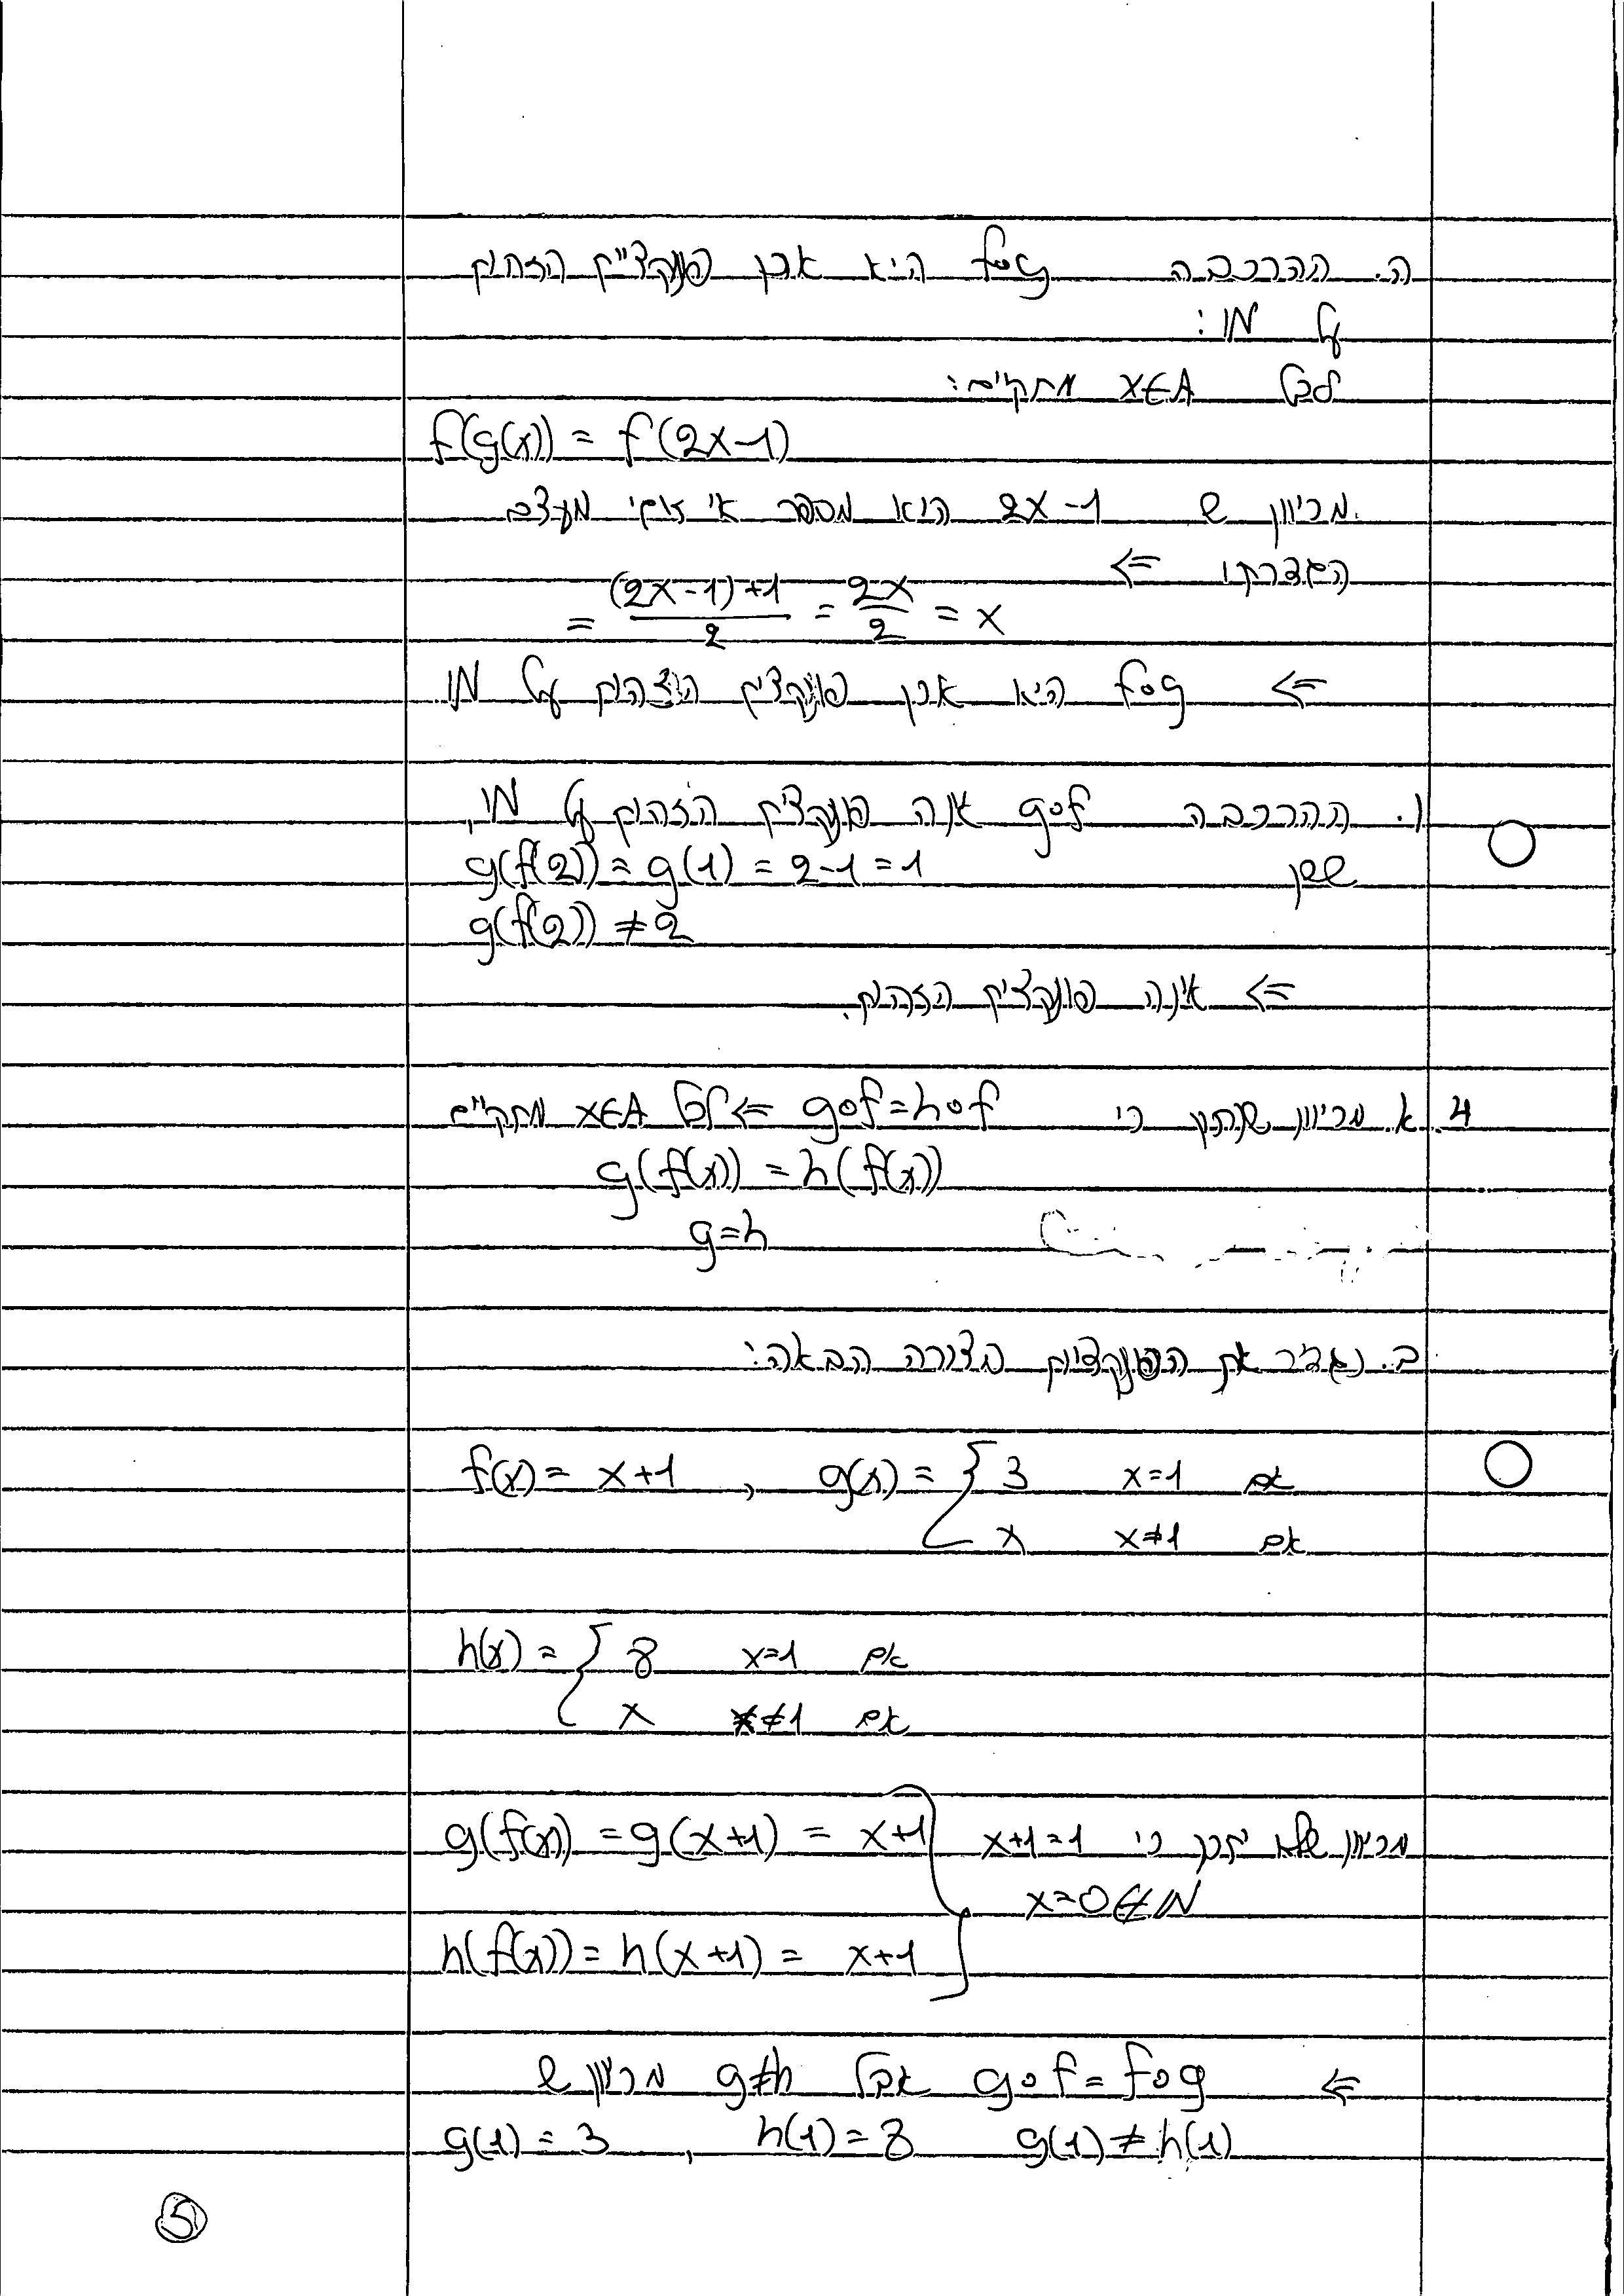 ה. ההרכבה fog היא אכן פונקציית הזהות
על IN :
לכל x∈A מתקיים:
f(g(x)) = f(2x-1)
מכיוון ש 2x-1 היא מספר אי זוגי מעצם
הגדרתו ⇐
= (2x-1)+1/2 = 2x/2 = x
⇐ fog היא אכן פונקצית הזהות על IN.
ו. ההרכבה gof אינה פונקצית הזהות על IN,
שכן g(f(2)) = g(1) = 2-1 = 1
g(f(2)) ≠ 2
⇐ אינה פונקצית הזהות.
4. א מכיוון שנתון כי gof = hof ⇐ לכל x∈A מתקיים
g(f(x)) = h(f(x))
g=h
ב. נגדיר את הפונקציות בצורה הבאה:
f(x) = x+1 , g(x) = { 3 x=1 אם
x x≠1 אם
h(x) = { 8 x=1 אם
x x≠1 אם
g(f(x)) = g(x+1) = x+1 } מכיוון שלא יתכן כי x+1=1
x=0∉IN
h(f(x)) = h(x+1) = x+1
⇐ gof = fog אבל g≠h מכיוון ש
g(1) = 3 , h(1) = 8 g(1) ≠ h(1)
5